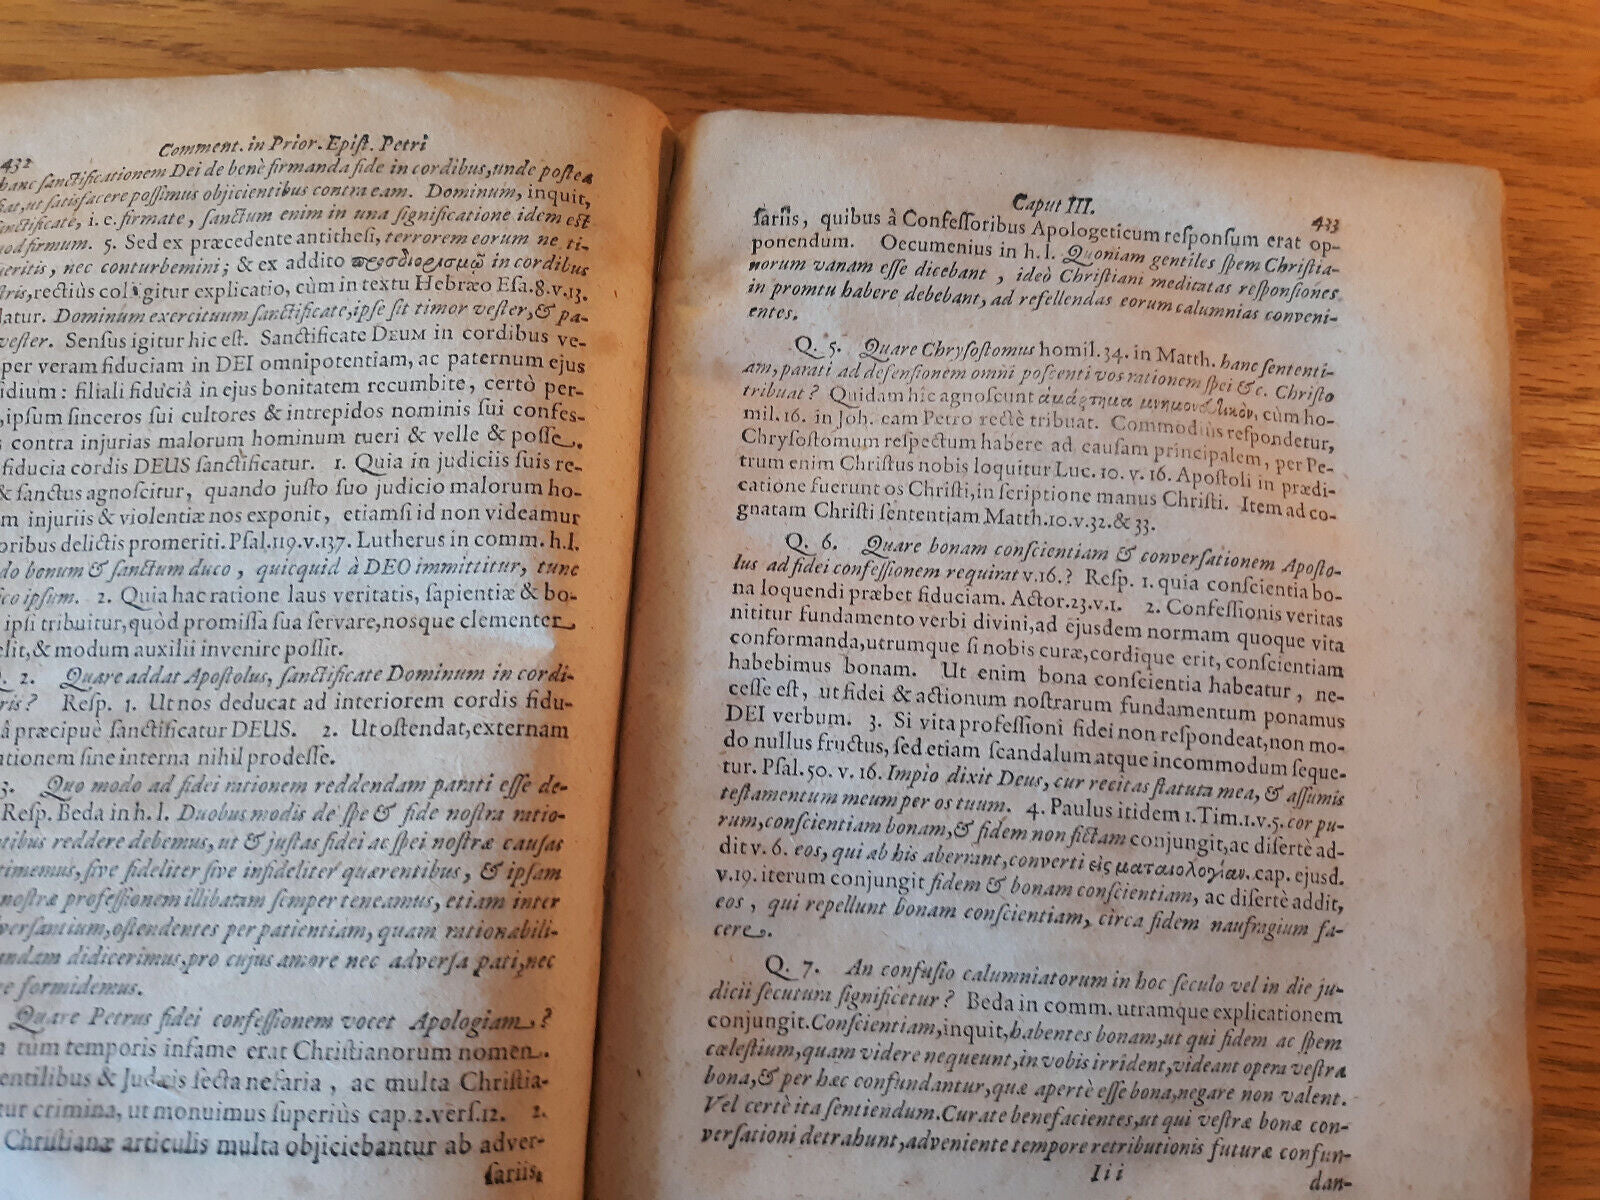 432
Comment. in Prior. Epiſt. Petri
hanc ſanctificationem Dei de benè firmanda fide in cordibus, unde poſtea
ut ſatisfacere poſſimus objicientibus contra eam. Dominum, inquit,
ſanctificate, i. e. firmate, ſanctum enim in una ſignificatione idem eſt
firmum. 5. Sed ex præcedente antitheſi, terrorem eorum ne ti-
, nec conturbemini; & ex addito προσδιορισμῷ in cordibus
, rectiùs colligitur explicatio, cùm in textu Hebræo Eſa. 8. v. 13.
latur. Dominum exercituum ſanctificate, ipſe ſit timor veſter, & pa-
veſter. Senſus igitur hic eſt. Sanctificate DEUM in cordibus ve-
per veram fiduciam in DEI omnipotentiam, ac paternum ejus
idium: filiali fiduciâ in ejus bonitatem recumbite, certò per-
, ipſum ſinceros ſui cultores & intrepidos nominis ſui confeſ-
contra injurias malorum hominum tueri & velle & poſſe.
fiducia cordis DEUS ſanctificatur. 1. Quia in judiciis ſuis re-
& ſanctus agnoſcitur, quando juſto ſuo judicio malorum ho-
m injuriis & violentiæ nos exponit, etiamſi id non videamur
oribus delictis promeriti. Pſal. 119. v. 137. Lutherus in comm. h. l.
do bonum & ſanctum duco, quicquid à DEO immittitur, tunc
co ipſum. 2. Quia hac ratione laus veritatis, ſapientiæ & bo-
ipſi tribuitur, quòd promiſſa ſua ſervare, nosque clementer
elit, & modum auxilii invenire poſſit.
2. Quare addat Apoſtolus, ſanctificate Dominum in cordi-
ris? Reſp. 1. Ut nos deducat ad interiorem cordis fidu-
â præcipuè ſanctificatur DEUS. 2. Ut oſtendat, externam
tionem ſine interna nihil prodeſſe.
3. Quo modo ad fidei rationem reddendam parati eſſe de-
Reſp. Beda in h. l. Duobus modis de ſpe & fide noſtra ratio-
tibus reddere debemus, ut & juſtas fidei ac ſpei noſtræ cauſas
timemus, ſive fideliter ſive infideliter quærentibus, & ipſam
noſtræ profeſſionem illibatam ſemper teneamus, etiam inter
verſantium, oſtendentes per patientiam, quam rationabili-
undam didicerimus, pro cujus amore nec adverſa pati, nec
formidemus.
Quare Petrus fidei confeſſionem vocet Apologiam?
tum temporis infame erat Chriſtianorum nomen.
entilibus & Judæis ſecta nefaria, ac multa Chriſtia-
tur crimina, ut monuimus ſuperiùs cap. 2. verſ. 12. 2.
Chriſtianæ articulis multa objiciebantur ab adver-
ſariis,
Caput III.
433
ſariis, quibus à Confeſſoribus Apologeticum reſponſum erat op-
ponendum. Oecumenius in h. l. Quoniam gentiles ſpem Chriſtia-
norum vanam eſſe dicebant, ideò Chriſtiani meditatas reſponſiones
in promtu habere debebant, ad refellendas eorum calumnias conveni-
entes.
Q. 5. Quare Chryſoſtomus homil. 34. in Matth. hanc ſententi-
am, parati ad defenſionem omni poſcenti vos rationem ſpei &c. Chriſto
tribuat? Quidam hîc agnoſcunt ἁμάρτημα μνημονευτικὸν, cùm ho-
mil. 16. in Joh. eam Petro rectè tribuat. Commodiùs reſpondetur,
Chryſoſtomum reſpectum habere ad cauſam principalem, per Pe-
trum enim Chriſtus nobis loquitur Luc. 10. v. 16. Apoſtoli in prædi-
catione fuerunt os Chriſti, in ſcriptione manus Chriſti. Item ad co-
gnatam Chriſti ſententiam Matth. 10. v. 32. & 33.
Q. 6. Quare bonam conſcientiam & converſationem Apoſto-
lus ad fidei confeſſionem requirat v. 16.? Reſp. 1. quia conſcientia bo-
na loquendi præbet fiduciam. Actor. 23. v. 1. 2. Confeſſionis veritas
nititur fundamento verbi divini, ad ejusdem normam quoque vita
conformanda, utrumque ſi nobis curæ, cordique erit, conſcientiam
habebimus bonam. Ut enim bona conſcientia habeatur, ne-
ceſſe eſt, ut fidei & actionum noſtrarum fundamentum ponamus
DEI verbum. 3. Si vita profeſſioni fidei non reſpondeat, non mo-
do nullus fructus, ſed etiam ſcandalum atque incommodum ſeque-
tur. Pſal. 50. v. 16. Impio dixit Deus, cur recitas ſtatuta mea, & aſſumis
teſtamentum meum per os tuum. 4. Paulus itidem 1. Tim. 1. v. 5. cor pu-
rum, conſcientiam bonam, & fidem non fictam conjungit, ac diſertè ad-
dit v. 6. eos, qui ab his aberrant, converti εἰς ματαιολογίαν. cap. ejusd.
v. 19. iterum conjungit fidem & bonam conſcientiam, ac diſertè addit,
eos, qui repellunt bonam conſcientiam, circa fidem naufragium fa-
cere.
Q. 7. An confuſio calumniatorum in hoc ſeculo vel in die ju-
dicii ſecutura ſignificetur? Beda in comm. utramque explicationem
conjungit. Conſcientiam, inquit, habentes bonam, ut qui fidem ac ſpem
cœleſtium, quam videre nequeunt, in vobis irrident, videant opera veſtra
bona, & per hæc confundantur, quæ apertè eſſe bona, negare non valent.
Vel certè ita ſentiendum. Curate benefacientes, ut qui veſtræ bonæ con-
verſationi detrahunt, adveniente tempore retributionis futuræ confun-
Iii
dan-